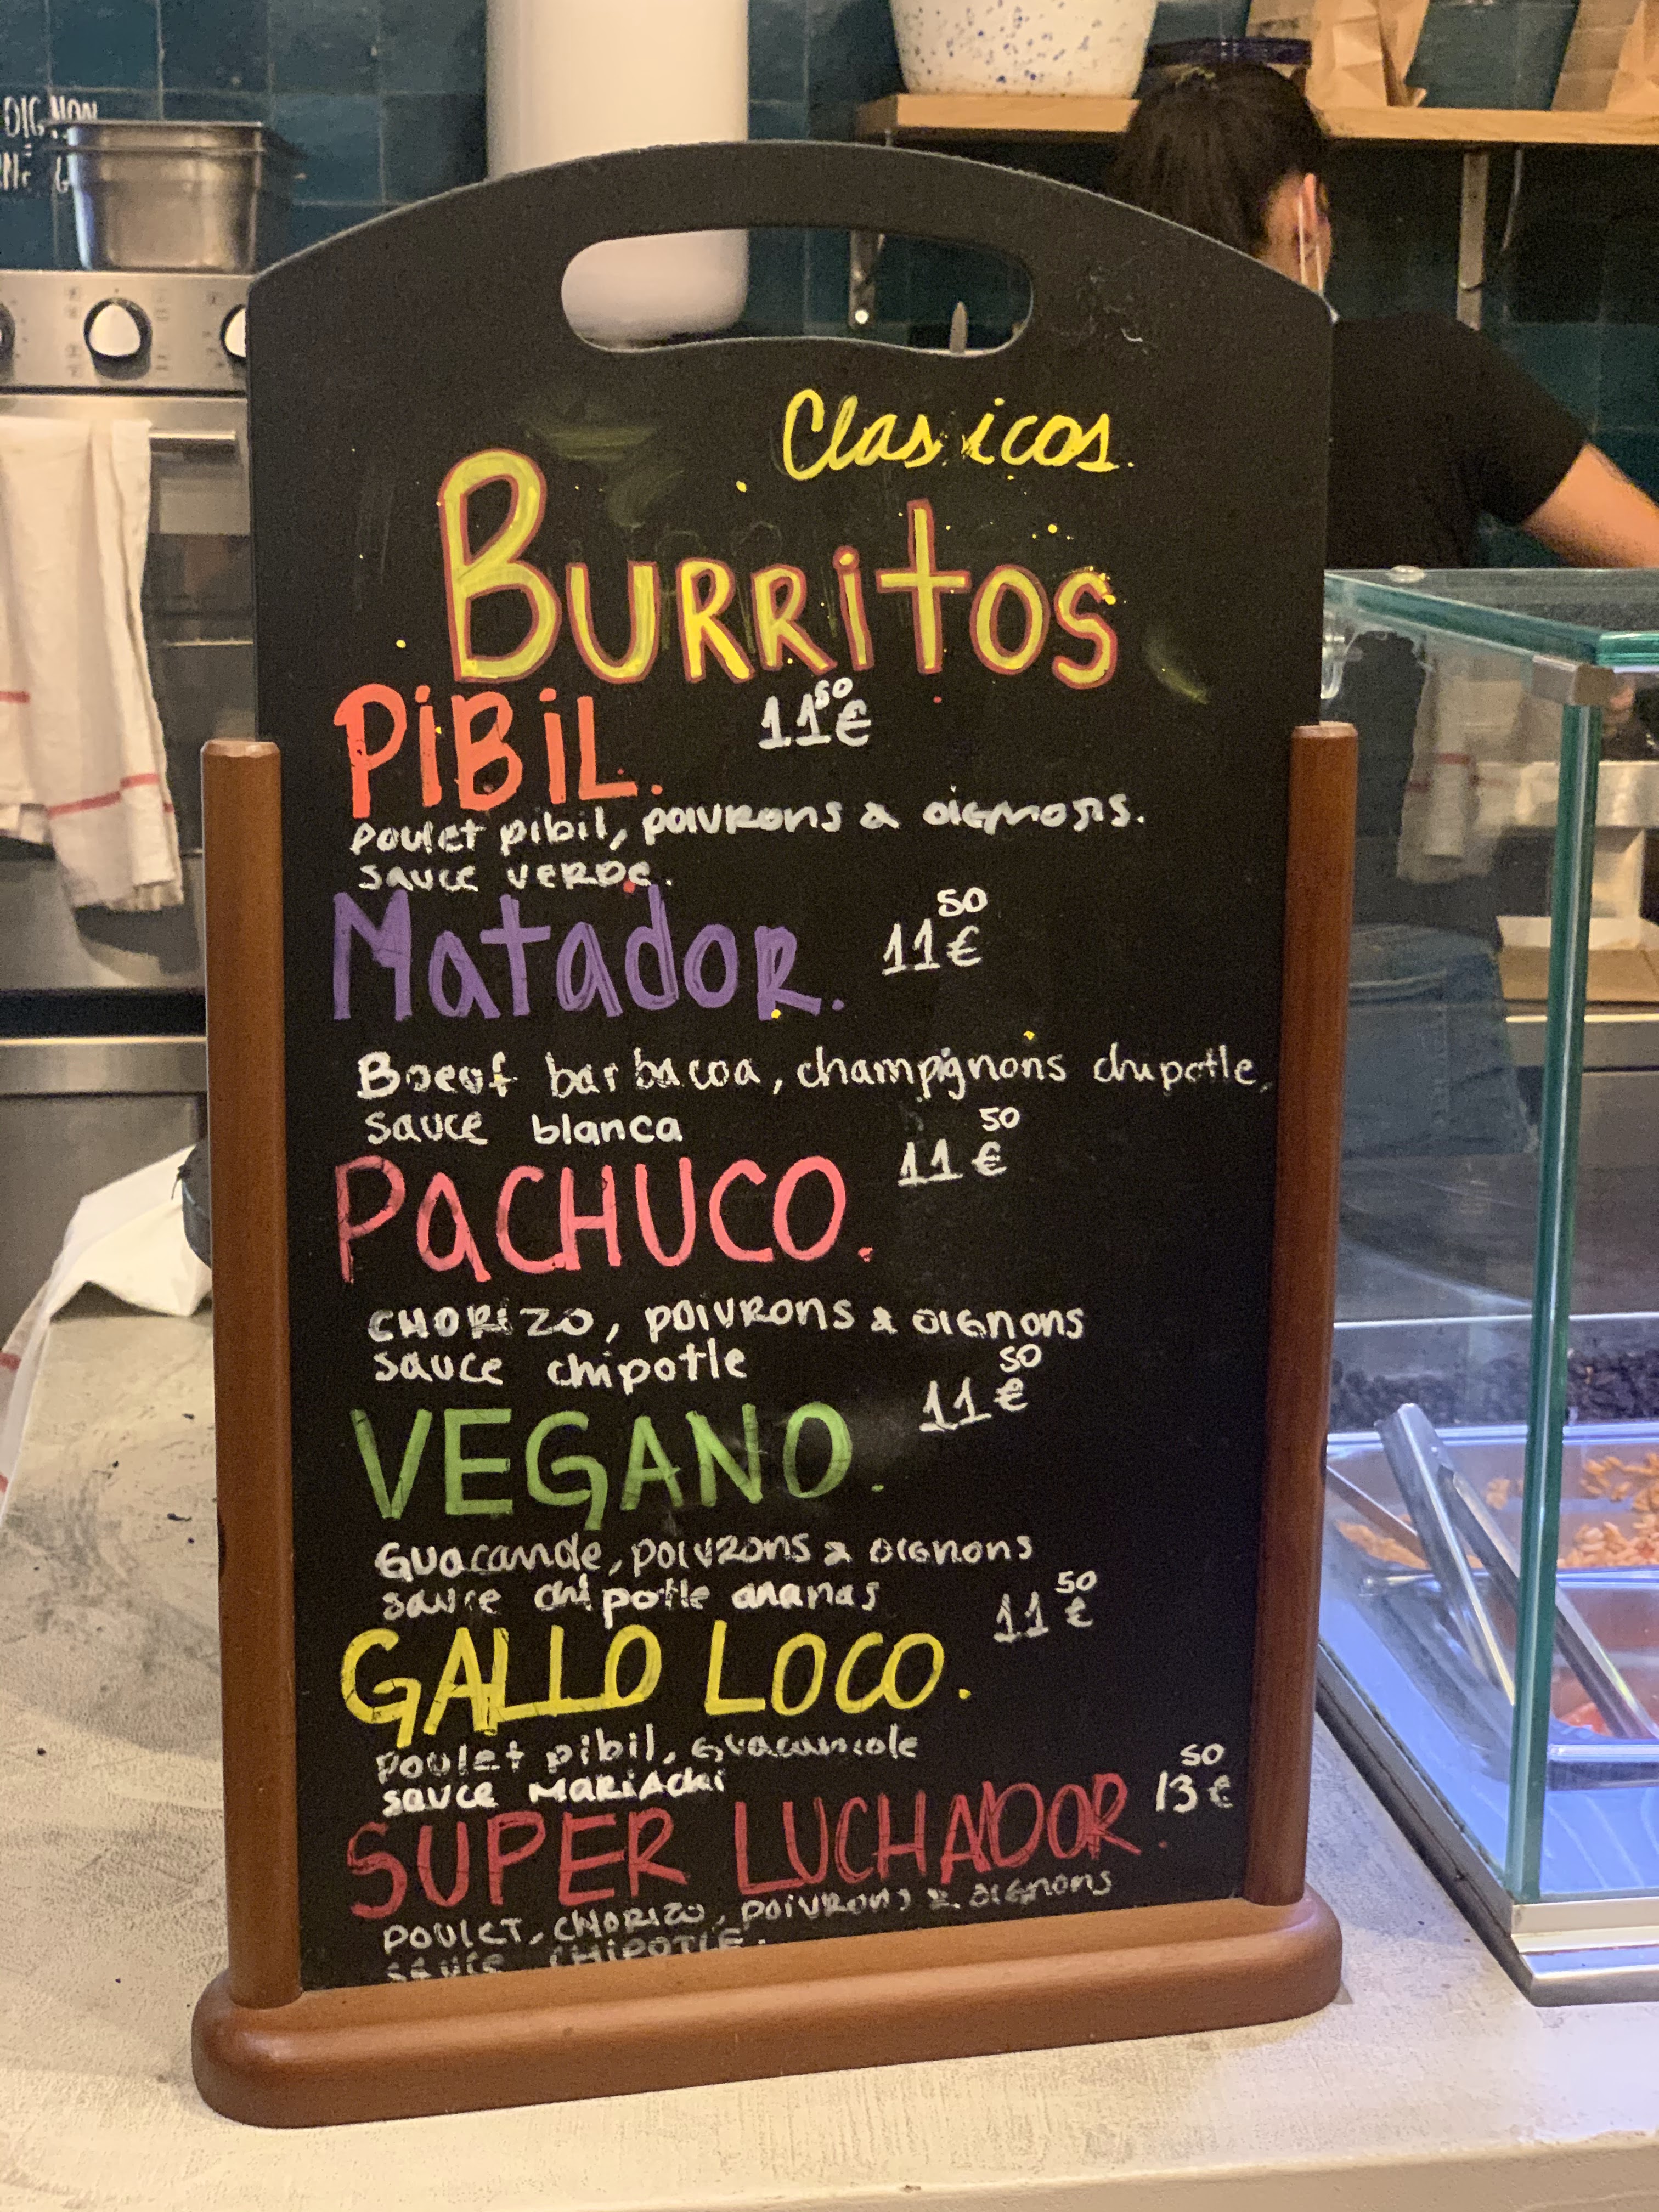 OIGNON
Clasicos.
BURRITOS
PIBIL. 11€50
Poulet pibil, poivrons & oignosis.
sauce verde.
Matador. 11€50
Boeuf barbacoa, champignons chipotle,
sauce blanca
PACHUCO. 11€50
CHORIZO, poivrons & oignons
sauce chipotle
VEGANO. 11€50
Guacamole, poivrons & oignons
sauce chipotle ananas
GALLO LOCO. 11€50
Poulet pibil, Guacamole
sauce MARIAchi
SUPER LUCHADOR. 13€50
POULET, CHORIZO, POIVRONS & OIGNONS
SAUCE CHIPOTLE.